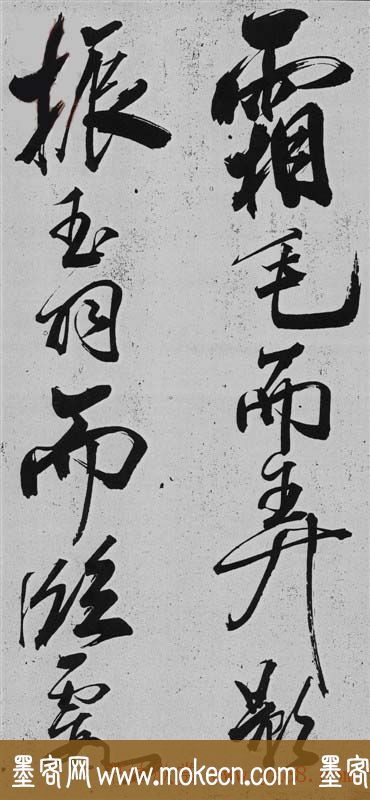 霜毛而弄影
振玉羽而臨霞
墨客网 www.mokecn.com 墨客网